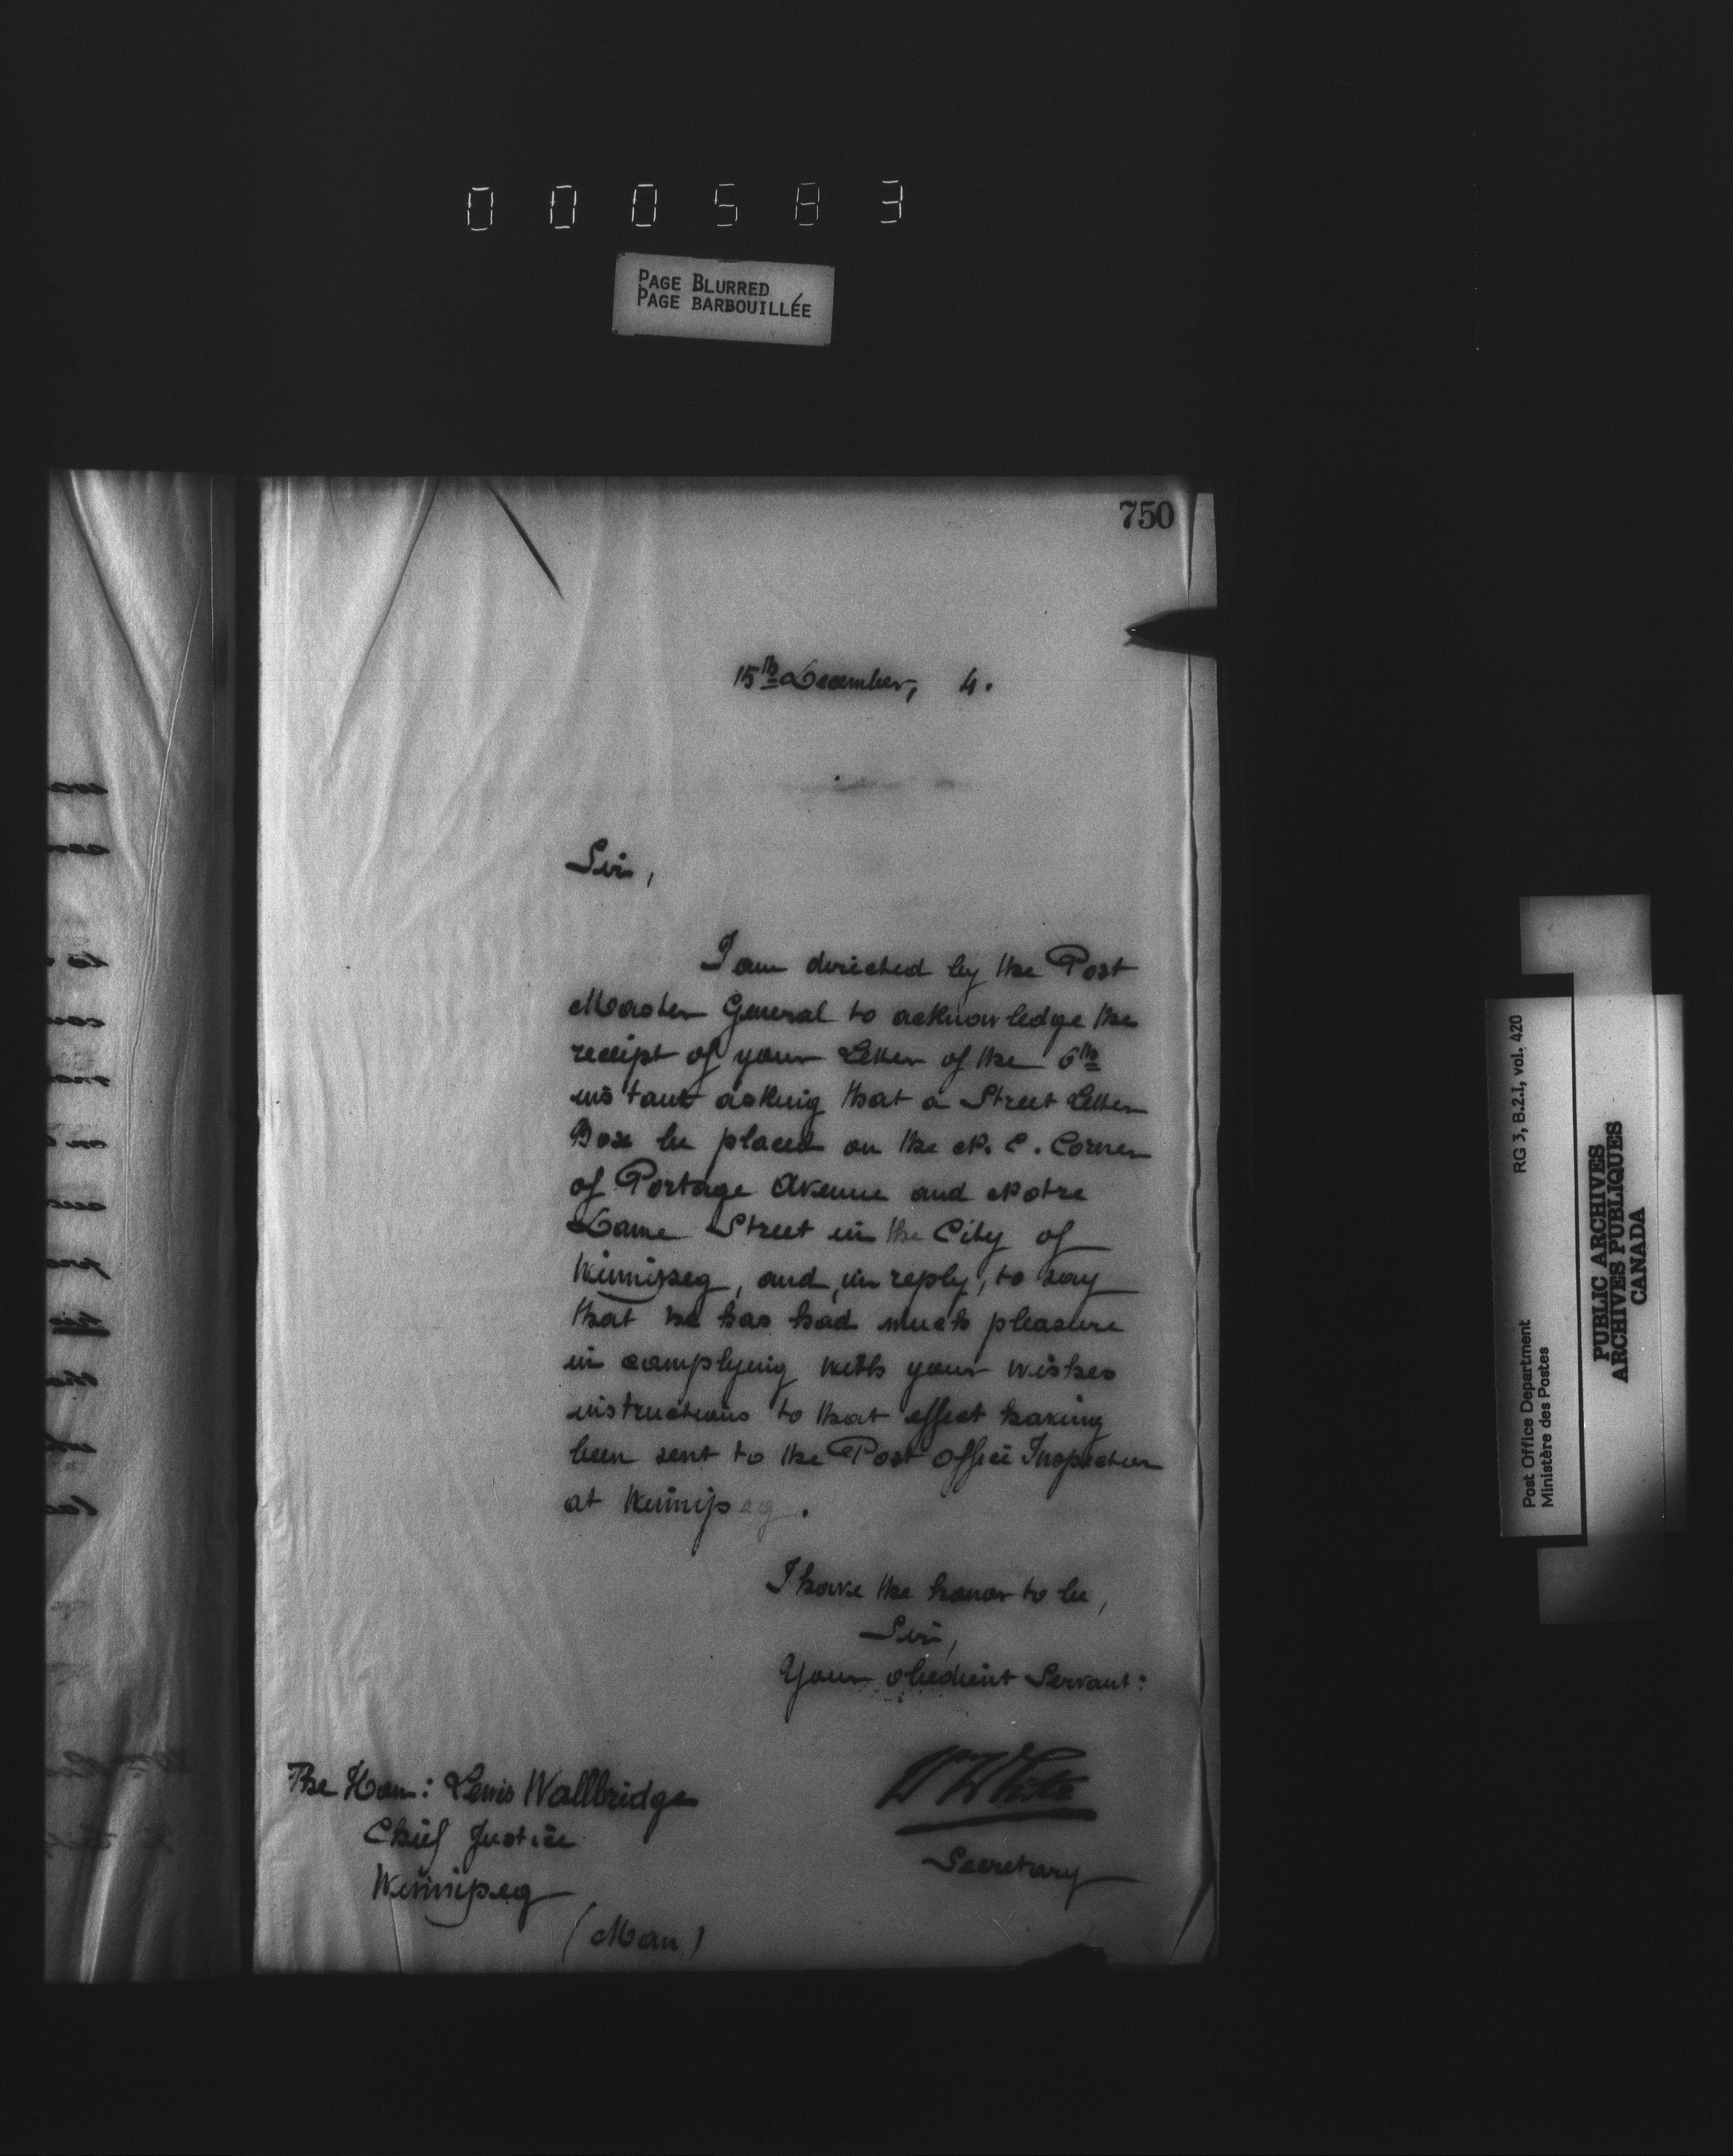 000583
PAGE BLURRED
PAGE BARBOUILLÉE
750
15th December, 4.
Sir,
I am directed by the Post
Master General to acknowledge the
receipt of your Letter of the 6th
instant asking that a Street Letter
Box be placed on the N. E. Corner
of Portage Avenue and Notre
Dame Street in the City of
Winnipeg, and, in reply, to say
that he has had much pleasure
in complying with your wishes
instructions to that effect having
been sent to the Post Office Inspector
at Winnipeg.
I have the honor to be,
Sir,
Your obedient Servant:
W White
Secretary
The Hon: Lewis Wallbridge
Chief Justice
Winnipeg
(Man)
RG 3, B.2.1, vol. 420
Post Office Department
Ministère des Postes
PUBLIC ARCHIVES
ARCHIVES PUBLIQUES
CANADA